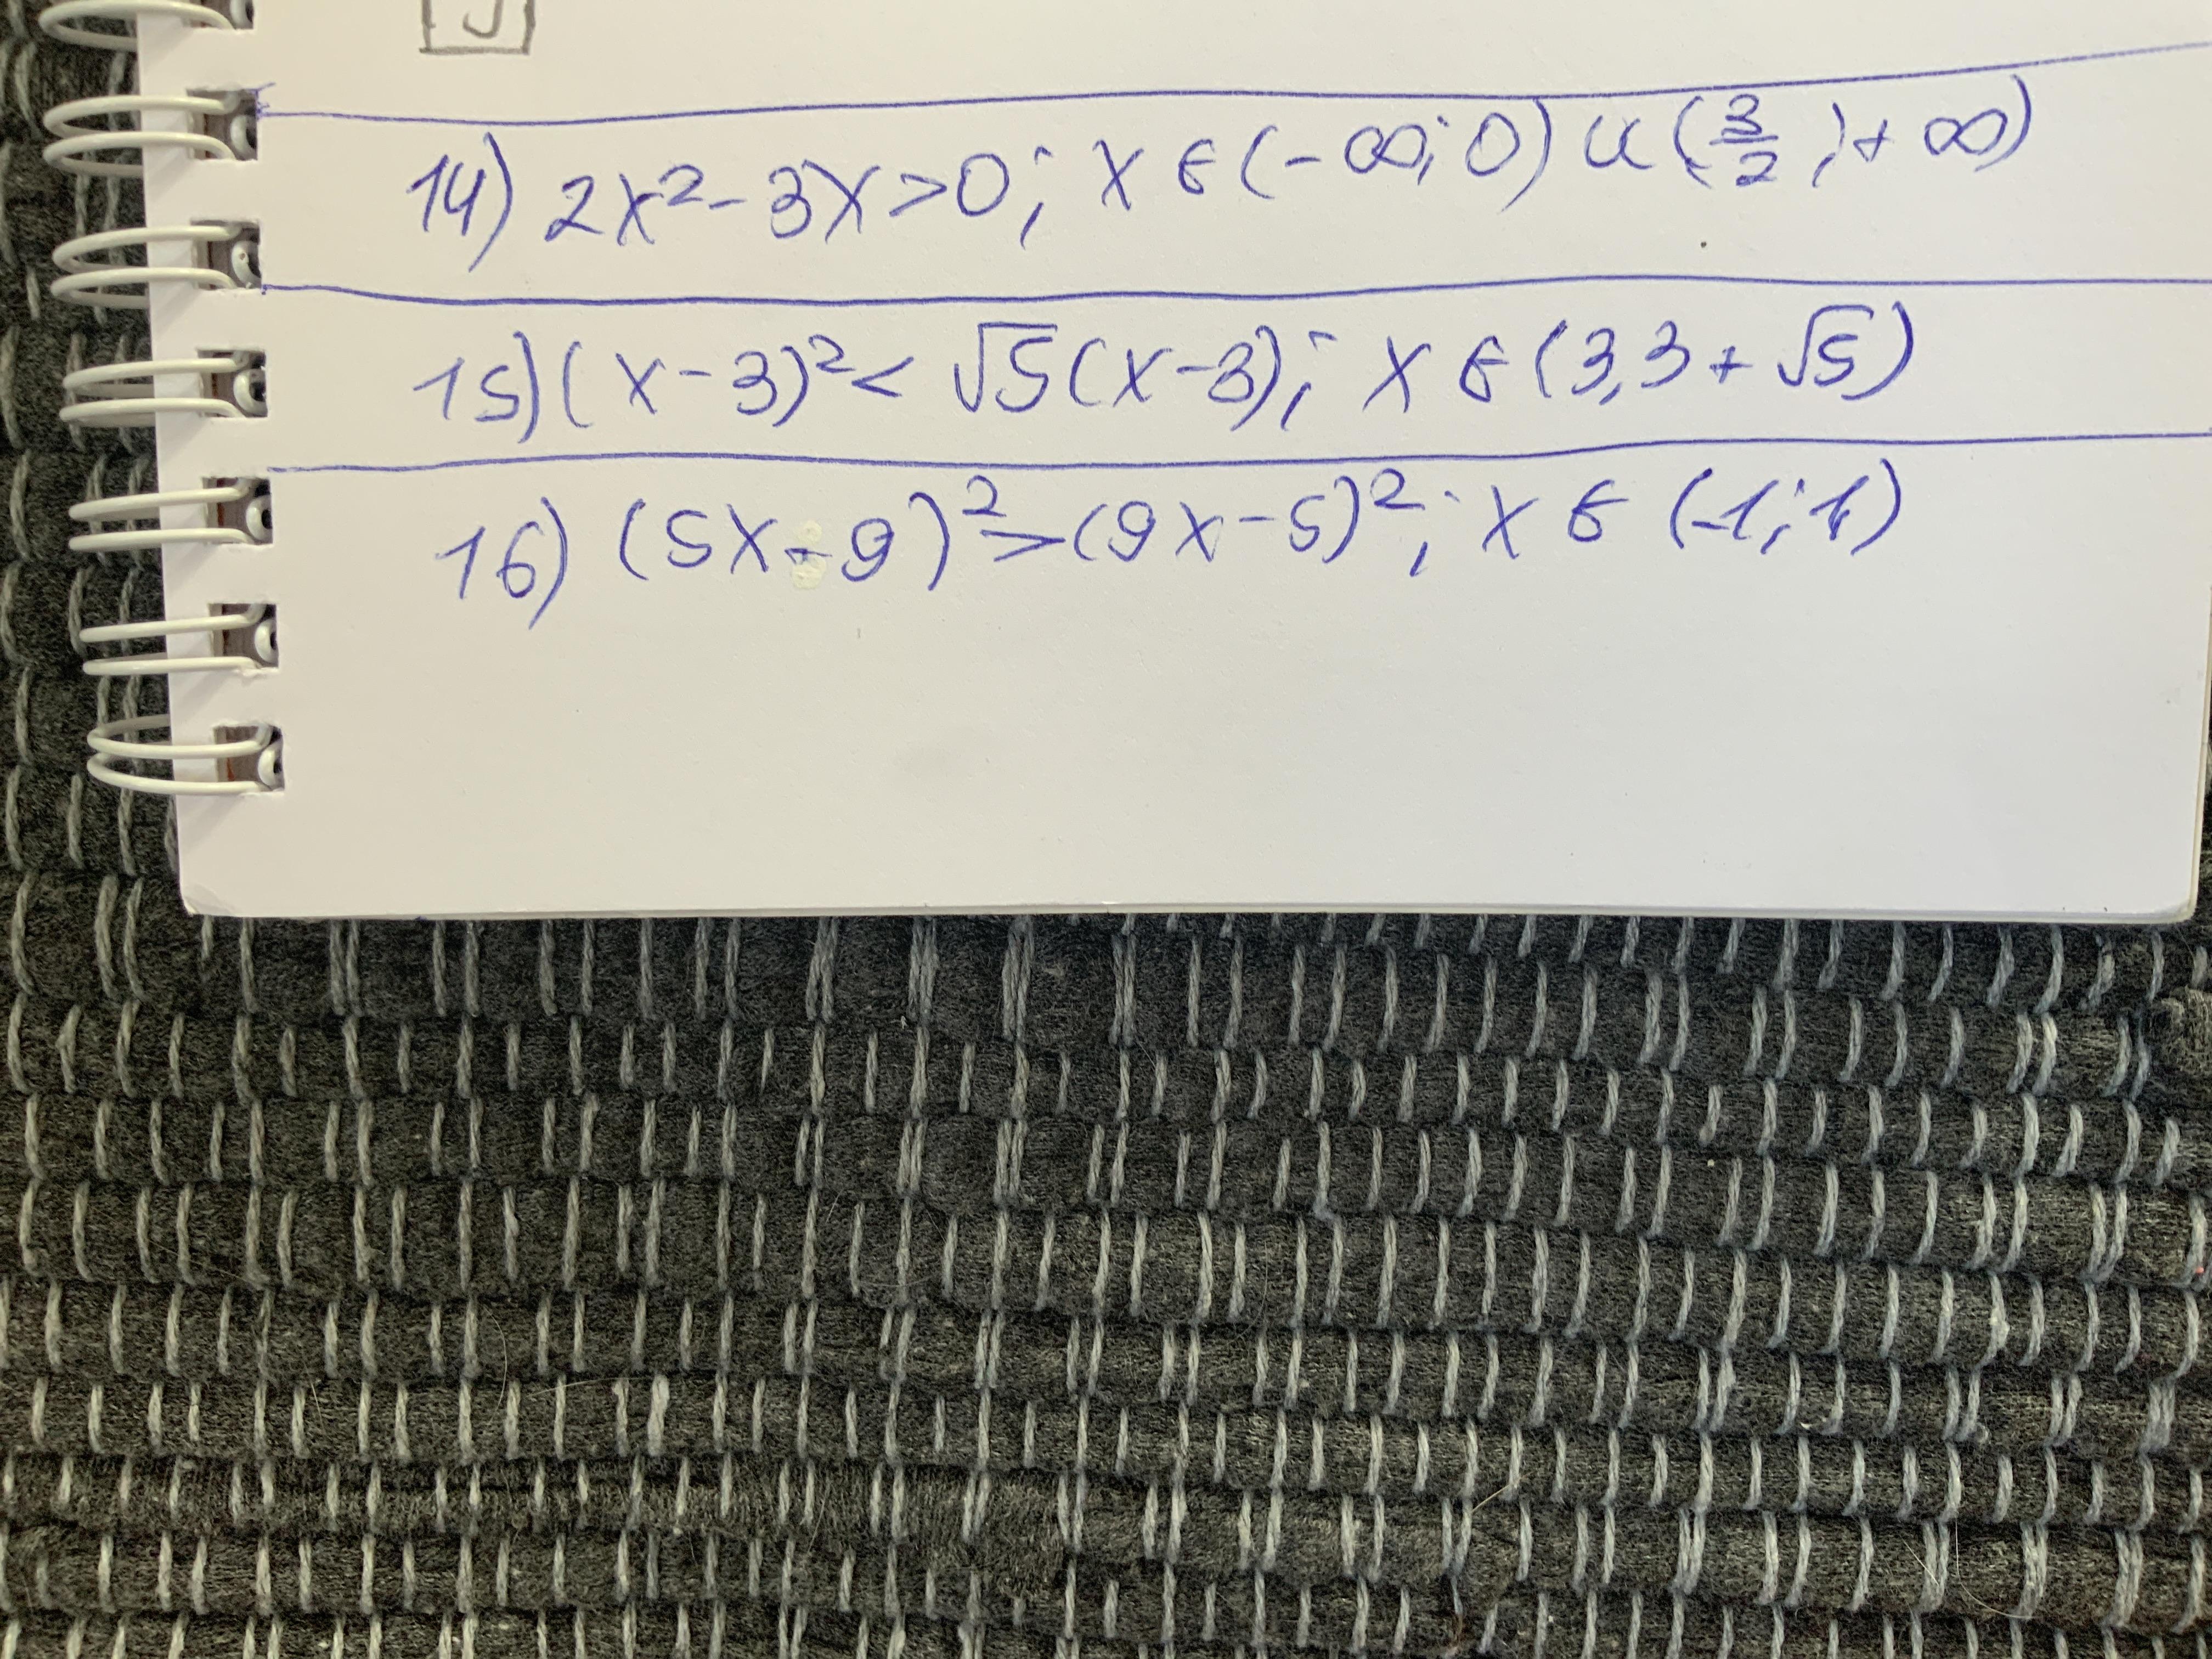 14) 2x²-3x>0; x ∈ (-∞; 0) ∪ (3/2; +∞)
15) (x-3)² < √5(x-3); x ∈ (3,3+√5)
16) (5x-9)² > (9x-5)²; x ∈ (-1; 1)